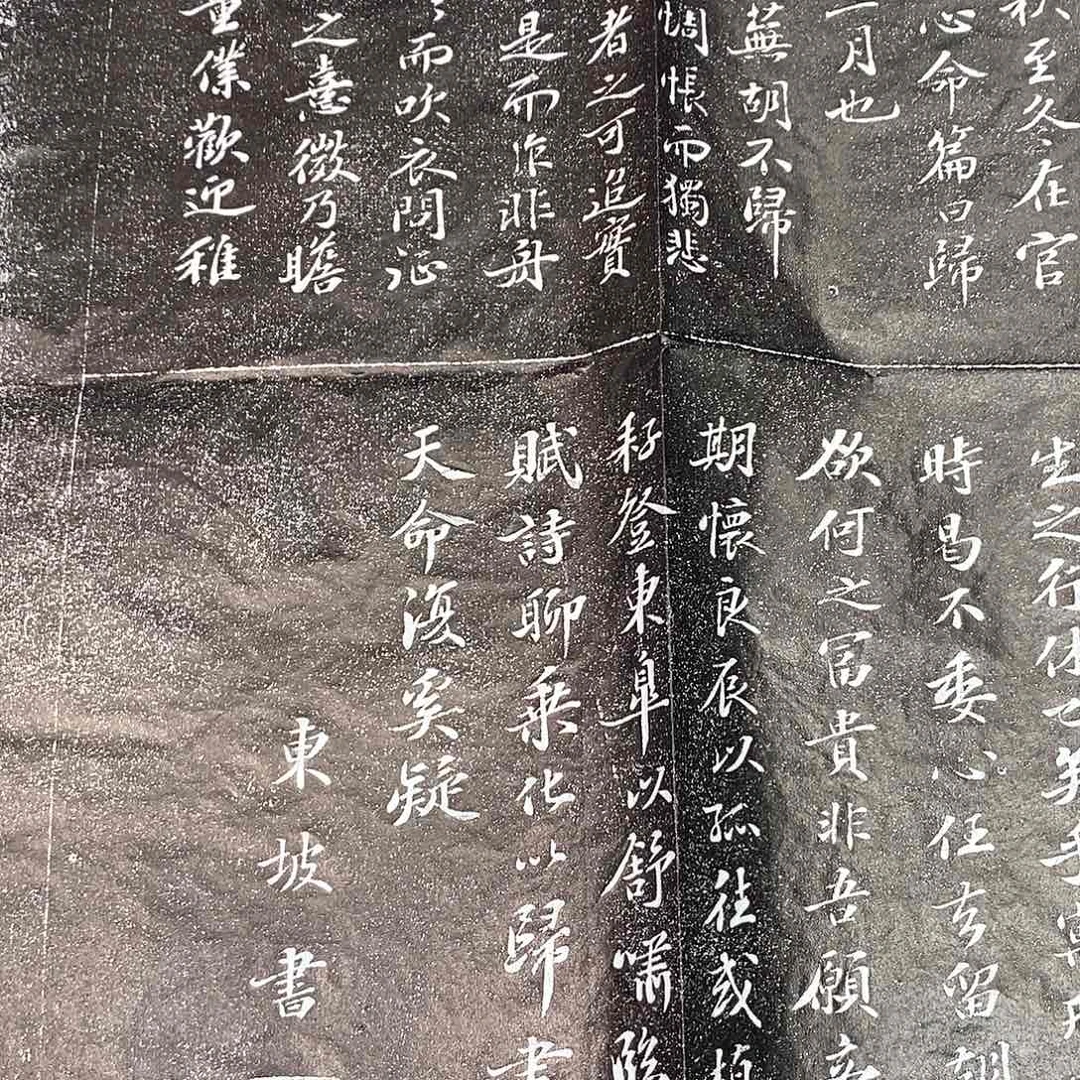 秋至冬在官
心命篇曰歸
一月也
蕪胡不歸
惆悵而獨悲
者之可追實
是而昨非舟
而吹衣問征
之熹微乃瞻
童僕歡迎稚
生之行休已矣乎寓形
時曷不委心任去留胡
欲何之富貴非吾願帝
期懷良辰以孤往或植
耔登東皋以舒嘯臨
賦詩聊乘化以歸盡
天命復奚疑
東坡書